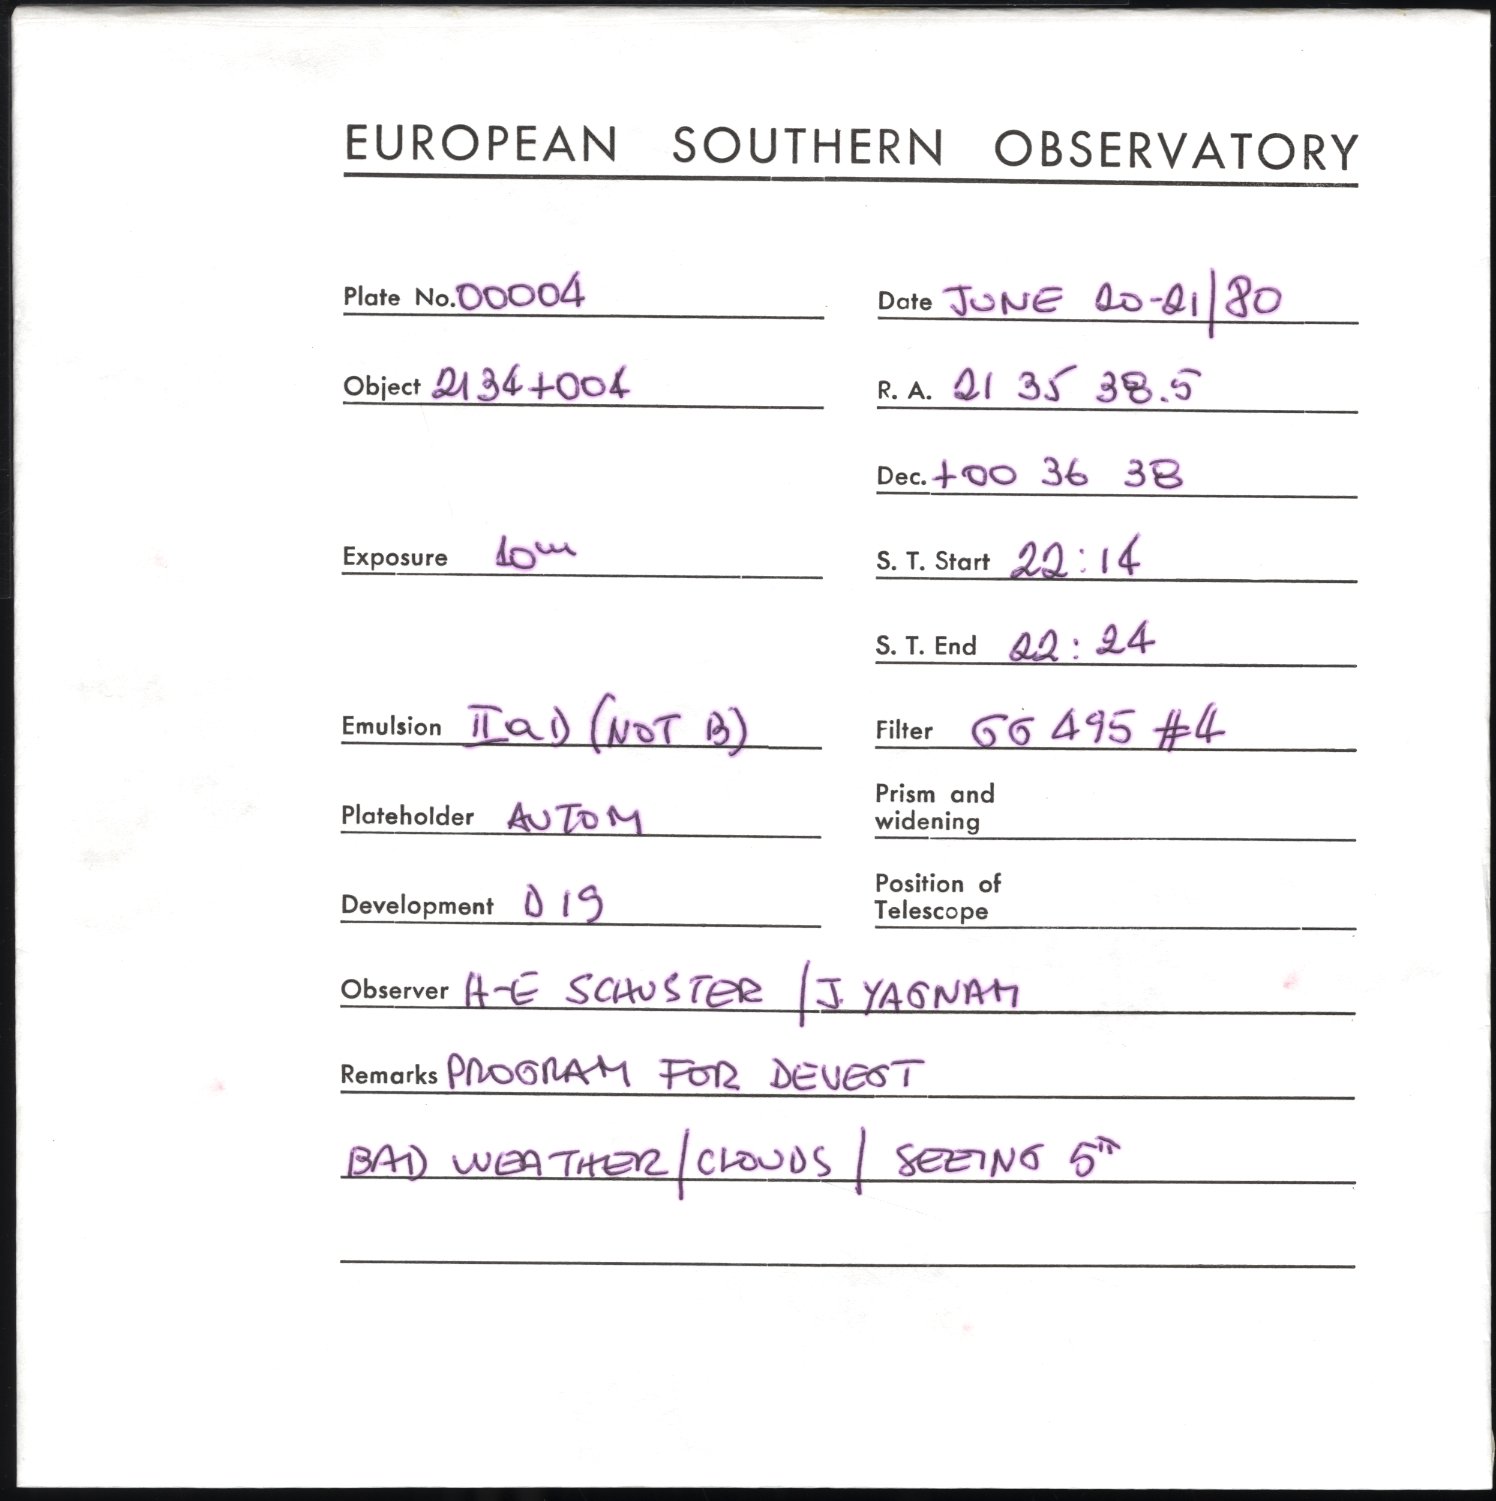 EUROPEAN SOUTHERN OBSERVATORY
Plate No. 00004
Date JUNE 20-21/80
Object 2134+004
R. A. 21 35 38.5
Dec. +00 36 38
Exposure 10m
S. T. Start 22:14
S. T. End 22:24
Emulsion IIaD (NOT B)
Filter GG 495 #4
Plateholder AUTOM
Prism and
widening
Development D19
Position of
Telescope
Observer H-E SCHUSTER / J. YAGNAM
Remarks PROGRAM FOR DEVEGT
BAD WEATHER/CLOUDS / SEEING 5"